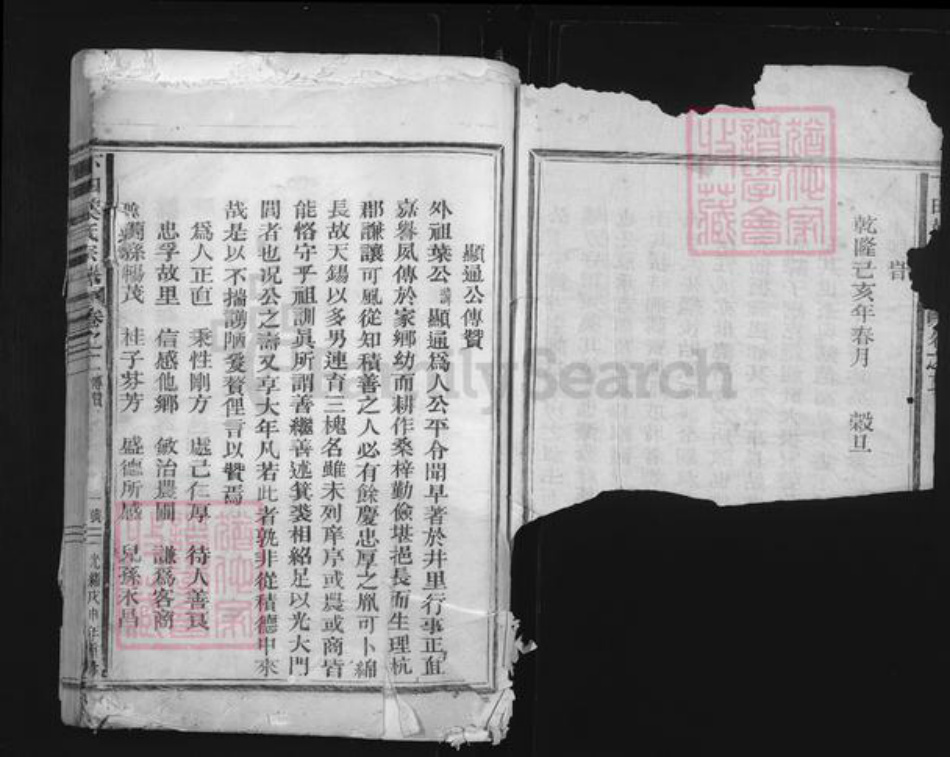 昔
乾隆己亥年春月 穀旦
顯過公傳贊
外祖葉公諱顯過為人公平令聞早著於井里行事正直
嘉譽夙傳於家鄉幼而耕作桑梓勤儉堪挹長而生理杭
郡謙讓可風從知積善之人必有餘慶忠厚之胤可卜綿
長故天錫以多男連育三槐名雖未列庠序或農或商皆
能恪守乎祖訓眞所謂善繼善述箕裘相紹足以光大門
閭者也况公之壽又享大年凡若此者孰非從積德中來
哉是以不揣譾陋爰贅俚言以贊焉
為人正直 秉性剛方 處己仁厚 待人善良
忠孚故里 信感他鄉 敏治農圃 謙為客商
蘭孫暢茂 桂子芬芳 盛德所感 兒孫永昌
氏宗譜 卷之二 傳贊 光緒戊申年重修
FamilySearch